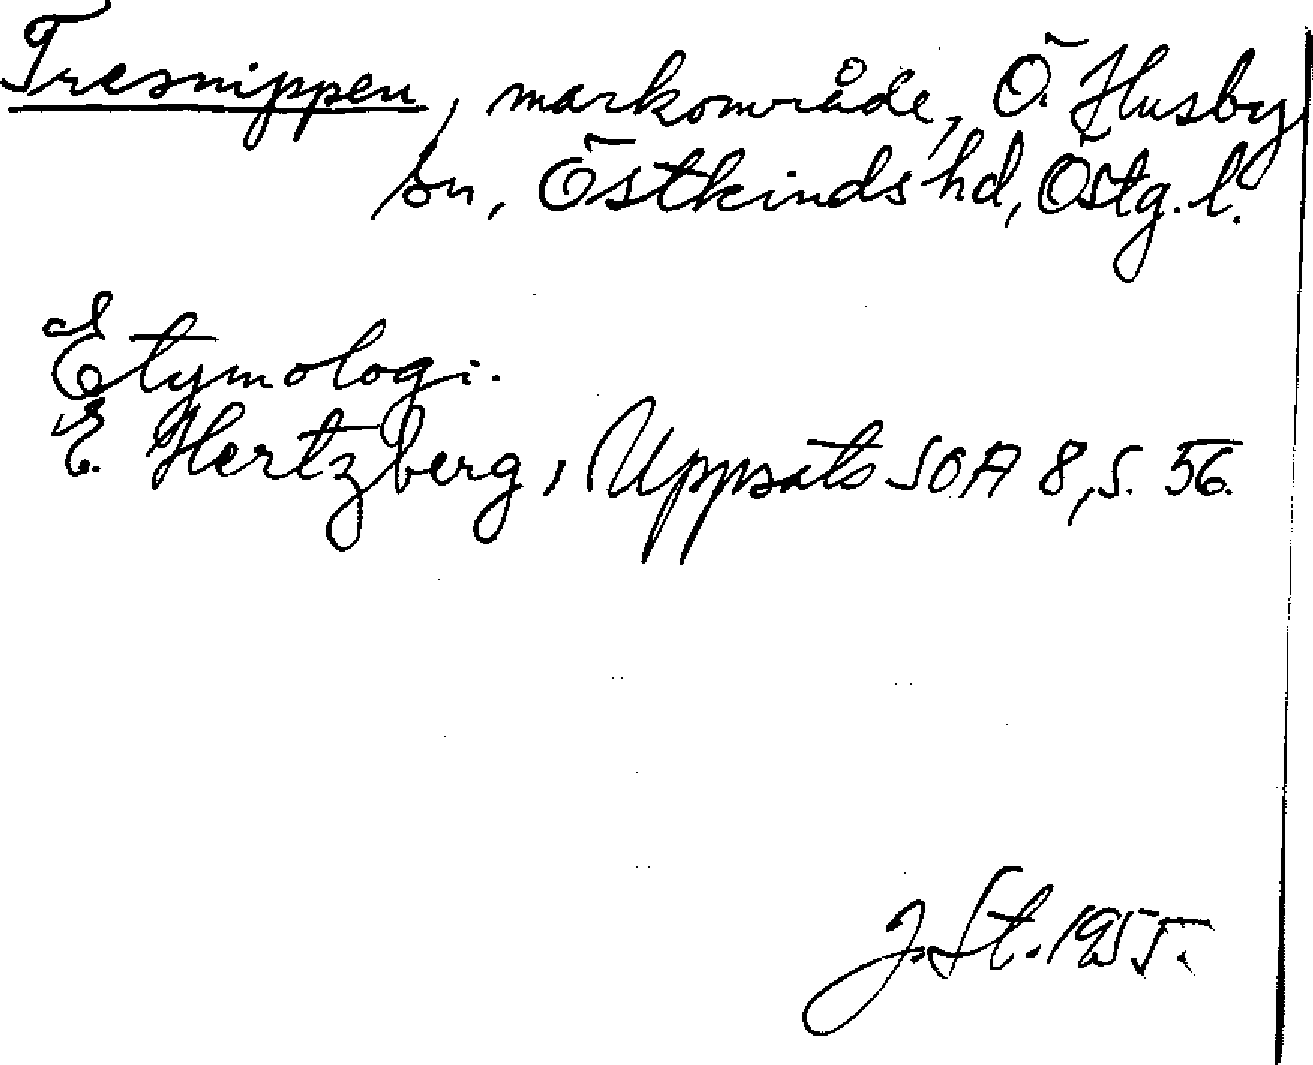 Tresnippen, markområde, Ö. Husby
sn, Östkinds hd, Östg. l.
Etymologi.
E. Hertzberg, Uppsats SOA 8, S. 56.
J. St. 1955.